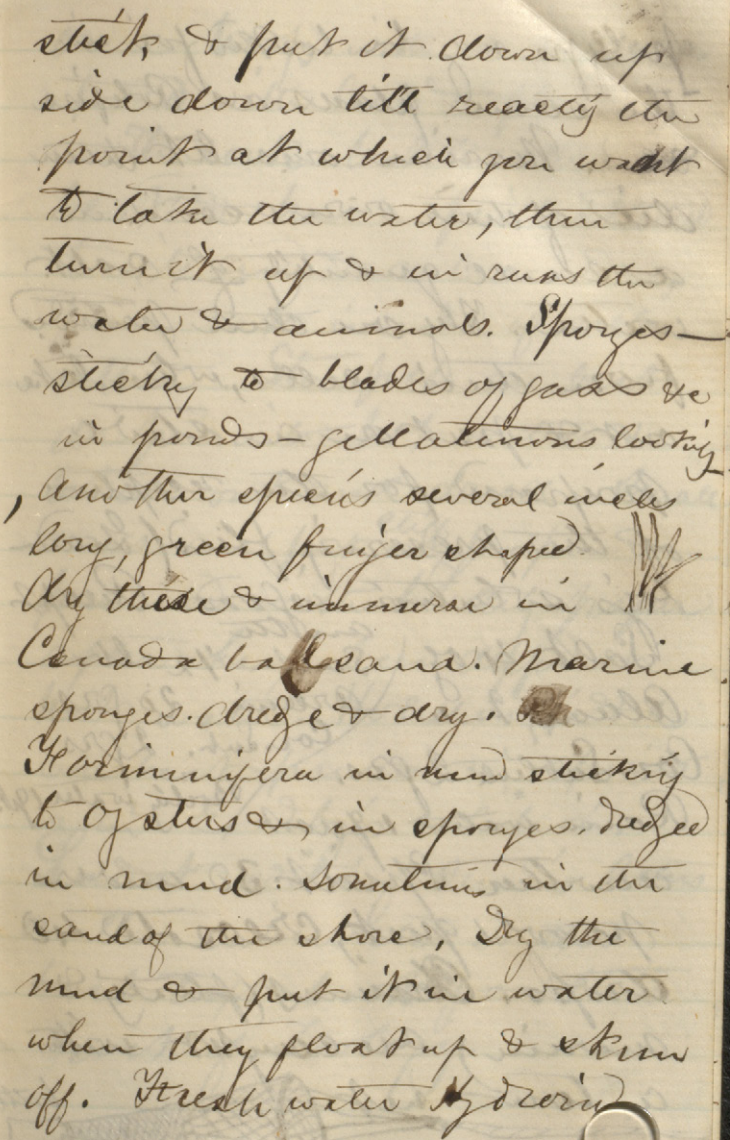 stick, & put it down up
side down till reach'g the
point at which you want
to take the water, then
turn it up & in runs the
water & animals. Sponges—
sticky to blades of grass &c
in ponds – gellatinous looking
, another species several inches
long, green finger shaped.
Dry these & immerse in
Canada balsam. Marine
sponges. dredge & dry.
Forminifera in mud sticking
to oysters & in sponges. dredged
in mud. Sometimes in the
sand of the shore, Dry the
mud & put it in water
when they float up & skim
off. Fresh water